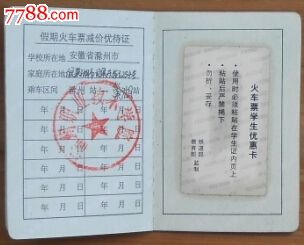 7788.com
假期火车票减价优待证
学校所在地 安徽省滁州市
家庭所在地
乘车区间 滁州 站— 站
年 月 日 年 月 日
年 月 日 年 月 日
年 月 日 年 月 日
年 月 日 年 月 日
年 月 日 年 月 日
火车票学生优惠卡
•使用时必须粘贴在学生证内页上
•粘贴后严禁揭下
•勿折、妥存
铁道部
教育部 监制